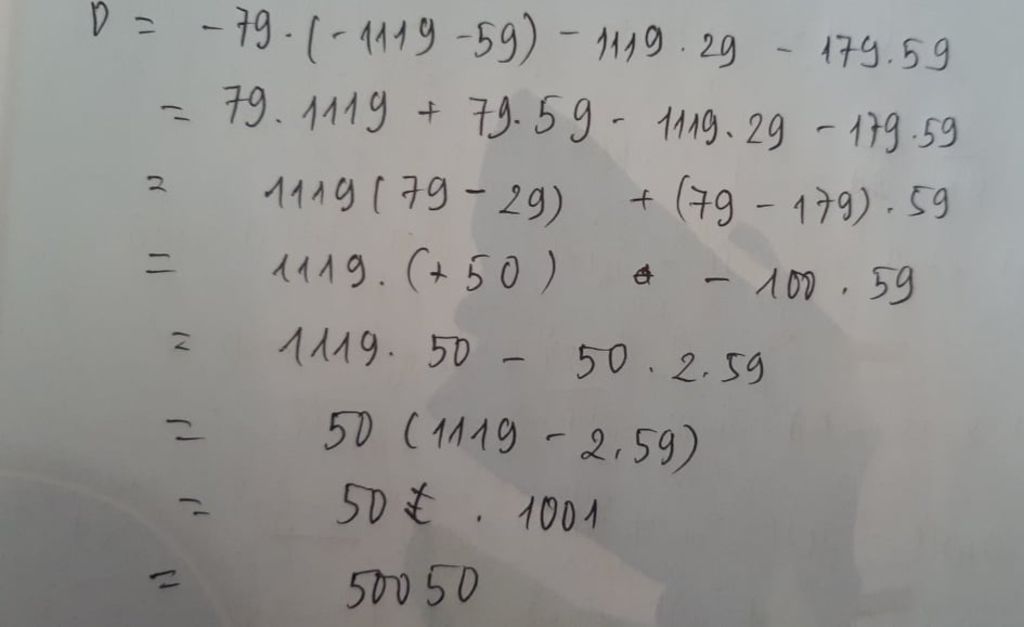 D = -79.(-1119 -59) - 1119.29 - 179.59
= 79.1119 + 79.59 - 1119.29 - 179.59
= 1119(79 - 29) + (79 - 179).59
= 1119.(+50) - 100.59
= 1119.50 - 50.2.59
= 50(1119 - 2.59)
= 50.1001
= 50050